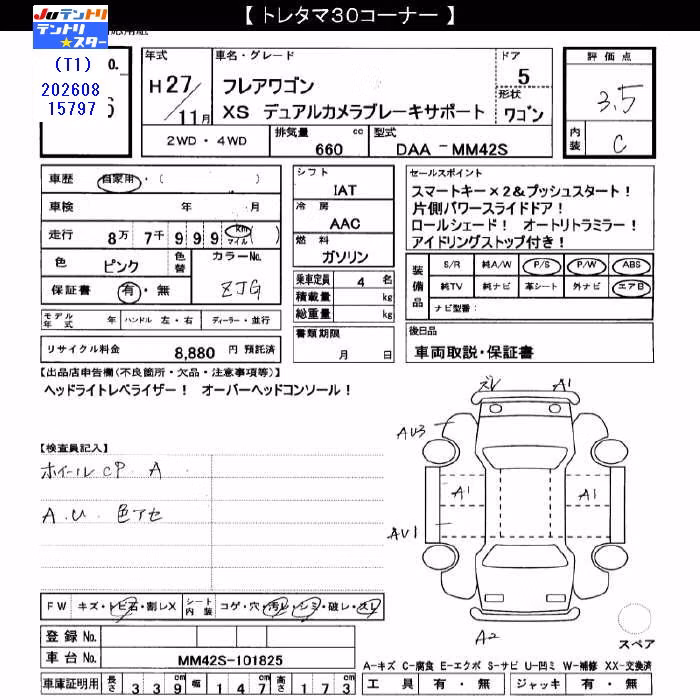 【 トレタマ30コーナー 】
JUテントリ
テントリ★スター
(T1)
202608
15797
No.
年式
H27/11月
車名・グレード
フレアワゴン
XS デュアルカメラブレーキサポート
ドア
5
形状
ワゴン
評価点
3.5
内装
C
2WD・4WD
排気量 660 cc
型式 DAA-MM42S
車歴 自家用・( )
車検 年 ・月
走行 8万 7千 9 9 9 km マイル ( )
色 ピンク
色替
カラーNo. ZJG
保証書 有・無
モデル年式 年 ハンドル 左・右 ディーラー・並行
リサイクル料金 8,880 円 預託済
シフト
IAT
冷房
AAC
燃料
ガソリン
乗車定員 4 名
積載量 kg
総重量 kg
書類期限
月 日
セールスポイント
スマートキー×2&プッシュスタート!
片側パワースライドドア!
ロールシェード! オートリトラミラー!
アイドリングストップ付き!
装備品
S/R 純A/W P/S P/W ABS
純TV 純ナビ 革シート 外ナビ エアB
ナビ型番:
後日品
車両取説・保証書
【出品店申告欄(不良箇所・欠品・注意事項等)】
ヘッドライトレベライザー! オーバーヘッドコンソール!
【検査員記入】
ホイールCP A
A.U. 色アセ
ズレ A1
AU3
A1 A1
AU1
A2
スペア
FW キズ・トビ石・割レX
シート内装 コゲ・穴・汚レ・シミ・破レ・スレ
登録 No.
車台 No. MM42S-101825
車庫証明用 長さ 339 幅 147 高さ 173
A-キズ C-腐食 E-エクボ S-サビ U-凹ミ W-補修 XX-交換済
工具 有・無 ジャッキ 有・無